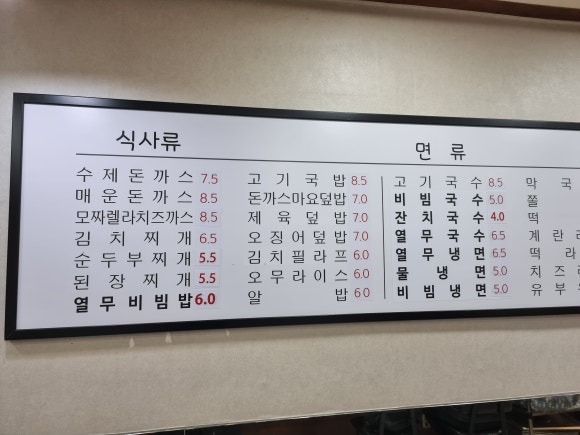 식사류
수제돈까스 7.5
매운돈까스 8.5
모짜렐라치즈까스 8.5
김치찌개 6.5
순두부찌개 5.5
된장찌개 5.5
열무비빔밥 6.0
고기국밥 8.5
돈까스마요덮밥 7.0
제육덮밥 7.0
오징어덮밥 7.0
김치필라프 6.0
오무라이스 6.0
알밥 6.0
면류
고기국수 8.5
비빔국수 5.0
잔치국수 4.0
열무국수 6.5
열무냉면 6.5
물냉면 5.0
비빔냉면 5.0
막국
쫄
떡
계란라
떡라
치즈라
유부우